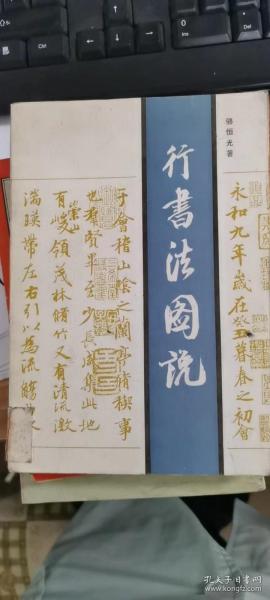 骆恒光著
行書法图说
永和九年歲在癸丑暮春之初會
于會稽山陰之蘭亭脩稧事
也羣賢畢至少長咸集此地
有崇山峻領茂林脩竹又有清流激
湍暎帶左右引以為流觴曲水
孔夫子旧书网